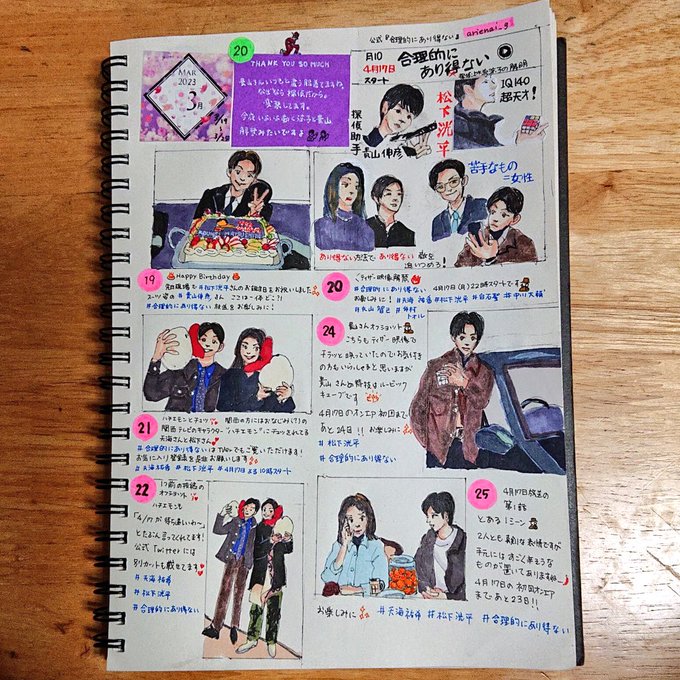 公式『合理的にあり得ない』
arienai_9
20
THANK YOU SO MUCH
MAR
2023
3月
3/19
月10
4月17日
スタート
合理的に
あり得ない
IQ140
超天才!
松下洸平
探偵助手
貴山伸彦
苦手なもの
=女性
あり得ない方法で あり得ない 敵を
追いつめろ!
19
Happy Birthday
#合理的にあり得ない 放送をお楽しみに!
20
ティザー映像解禁
#合理的にあり得ない 4月17日(月)22時スタートです
お楽しみに! #天海祐希 #松下洸平 #白石聖 #中川大輔
#丸山智己 #仲村
トオル
24
貴山さんオフショット
こちらもティザー映像で
チラッと映っていたのでお気付き
の方もいらっしゃると思いますが
貴山さんの特技はルービック
キューブです
4月17日のオンエア初回まで
あと24日!! お楽しみに
#松下洸平
#合理的にあり得ない
21
ハチエモンとチュッ
関西の方にはおなじみ(?)の
関西テレビのキャラクター"ハチエモン"にチュッされてる
天海さんと松下さん
#合理的にあり得ない はTVerでもご覧いただけます!
お気に入り登録を是非お願いします
#天海祐希 #松下洸平 #4月17日よる10時スタート
22
1つ前の投稿の
オフショット
ハチエモンも
「4/17が待ち遠しいわ〜」
とたぶん言ってくれてます!
公式Twitterには
別カットも載せてます
#天海祐希
#松下洸平
#合理的にあり得ない
25
4月17日放送の
第1話
とある1シーン
2人とも真剣な表情ですが
手元にはすごく辛そうな
ものが置いてありますね〜
4月17日の初回オンエア
まであと23日!!
お楽しみに
#天海祐希 #松下洸平 #合理的にあり得ない